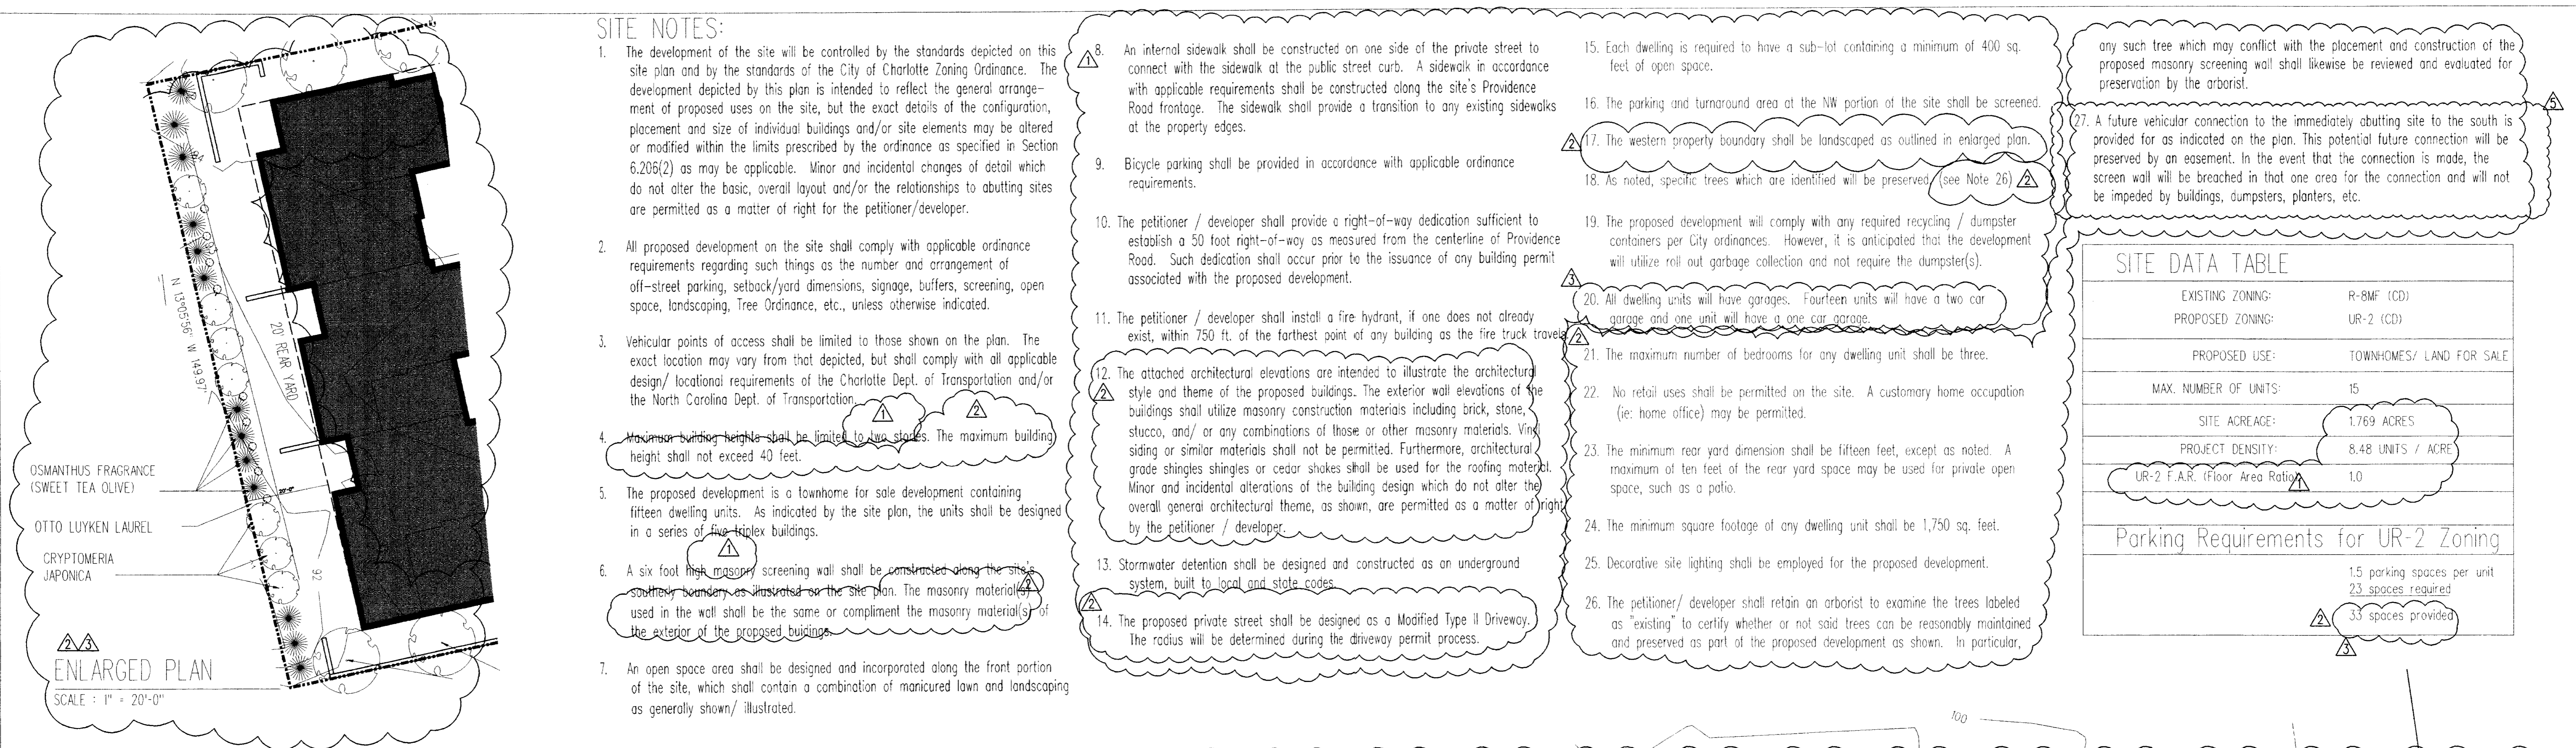 OSMANTHUS FRAGRANCE
(SWEET TEA OLIVE)
OTTO LUYKEN LAUREL
CRYPTOMERIA
JAPONICA
N 13°05'56" W 149.97'
20' REAR YARD
94
92
20'-0"
2 3
ENLARGED PLAN
SCALE : 1" = 20'-0"
SITE NOTES:
1. The development of the site will be controlled by the standards depicted on this
site plan and by the standards of the City of Charlotte Zoning Ordinance. The
development depicted by this plan is intended to reflect the general arrange-
ment of proposed uses on the site, but the exact details of the configuration,
placement and size of individual buildings and/or site elements may be altered
or modified within the limits prescribed by the ordinance as specified in Section
6.206(2) as may be applicable. Minor and incidental changes of detail which
do not alter the basic, overall layout and/or the relationships to abutting sites
are permitted as a matter of right for the petitioner/developer.
2. All proposed development on the site shall comply with applicable ordinance
requirements regarding such things as the number and arrangement of
off-street parking, setback/yard dimensions, signage, buffers, screening, open
space, landscaping, Tree Ordinance, etc., unless otherwise indicated.
3. Vehicular points of access shall be limited to those shown on the plan. The
exact location may vary from that depicted, but shall comply with all applicable
design/ locational requirements of the Charlotte Dept. of Transportation and/or
the North Carolina Dept. of Transportation.
1
2
4. Maximum building heights shall be limited to two stories. The maximum building
height shall not exceed 40 feet.
5. The proposed development is a townhome for sale development containing
fifteen dwelling units. As indicated by the site plan, the units shall be designed
in a series of five triplex buildings.
1
6. A six foot high masonry screening wall shall be constructed along the site's
southerly boundary as illustrated on the site plan. The masonry material(s)
2
used in the wall shall be the same or compliment the masonry material(s) of
the exterior of the proposed buidings.
7. An open space area shall be designed and incorporated along the front portion
of the site, which shall contain a combination of manicured lawn and landscaping
as generally shown/ illustrated.
1
8. An internal sidewalk shall be constructed on one side of the private street to
connect with the sidewalk at the public street curb. A sidewalk in accordance
with applicable requirements shall be constructed along the site's Providence
Road frontage. The sidewalk shall provide a transition to any existing sidewalks
at the property edges.
9. Bicycle parking shall be provided in accordance with applicable ordinance
requirements.
10. The petitioner / developer shall provide a right-of-way dedication sufficient to
establish a 50 foot right-of-way as measured from the centerline of Providence
Road. Such dedication shall occur prior to the issuance of any building permit
associated with the proposed development.
11. The petitioner / developer shall install a fire hydrant, if one does not already
exist, within 750 ft. of the farthest point of any building as the fire truck travels.
12. The attached architectural elevations are intended to illustrate the architectural
2
style and theme of the proposed buildings. The exterior wall elevations of the
buildings shall utilize masonry construction materials including brick, stone,
stucco, and/ or any combinations of those or other masonry materials. Vinyl
siding or similar materials shall not be permitted. Furthermore, architectural
grade shingles shingles or cedar shakes shall be used for the roofing material.
Minor and incidental alterations of the building design which do not alter the
overall general architectural theme, as shown, are permitted as a matter of right
by the petitioner / developer.
13. Stormwater detention shall be designed and constructed as an underground
system, built to local and state codes.
2
14. The proposed private street shall be designed as a Modified Type II Driveway.
The radius will be determined during the driveway permit process.
15. Each dwelling is required to have a sub-lot containing a minimum of 400 sq.
feet of open space.
16. The parking and turnaround area at the NW portion of the site shall be screened.
2
17. The western property boundary shall be landscaped as outlined in enlarged plan.
18. As noted, specific trees which are identified will be preserved. (see Note 26) 2
19. The proposed development will comply with any required recycling / dumpster
containers per City ordinances. However, it is anticipated that the development
will utilize roll out garbage collection and not require the dumpster(s).
3
20. All dwelling units will have garages. Fourteen units will have a two car
garage and one unit will have a one car garage.
2
21. The maximum number of bedrooms for any dwelling unit shall be three.
22. No retail uses shall be permitted on the site. A customary home occupation
(ie: home office) may be permitted.
23. The minimum rear yard dimension shall be fifteen feet, except as noted. A
maximum of ten feet of the rear yard space may be used for private open
space, such as a patio.
24. The minimum square footage of any dwelling unit shall be 1,750 sq. feet.
25. Decorative site lighting shall be employed for the proposed development.
26. The petitioner/ developer shall retain an arborist to examine the trees labeled
as "existing" to certify whether or not said trees can be reasonably maintained
and preserved as part of the proposed development as shown. In particular,
any such tree which may conflict with the placement and construction of the
proposed masonry screening wall shall likewise be reviewed and evaluated for
preservation by the arborist.
5
27. A future vehicular connection to the immediately abutting site to the south is
provided for as indicated on the plan. This potential future connection will be
preserved by an easement. In the event that the connection is made, the
screen wall will be breached in that one area for the connection and will not
be impeded by buildings, dumpsters, planters, etc.
SITE DATA TABLE
EXISTING ZONING: R-8MF (CD)
PROPOSED ZONING: UR-2 (CD)
PROPOSED USE: TOWNHOMES/ LAND FOR SALE
MAX. NUMBER OF UNITS: 15
SITE ACREAGE: 1.769 ACRES
PROJECT DENSITY: 8.48 UNITS / ACRE
UR-2 F.A.R. (Floor Area Ratio) 1 1.0
Parking Requirements for UR-2 Zoning
1.5 parking spaces per unit
23 spaces required
2 33 spaces provided
3
100